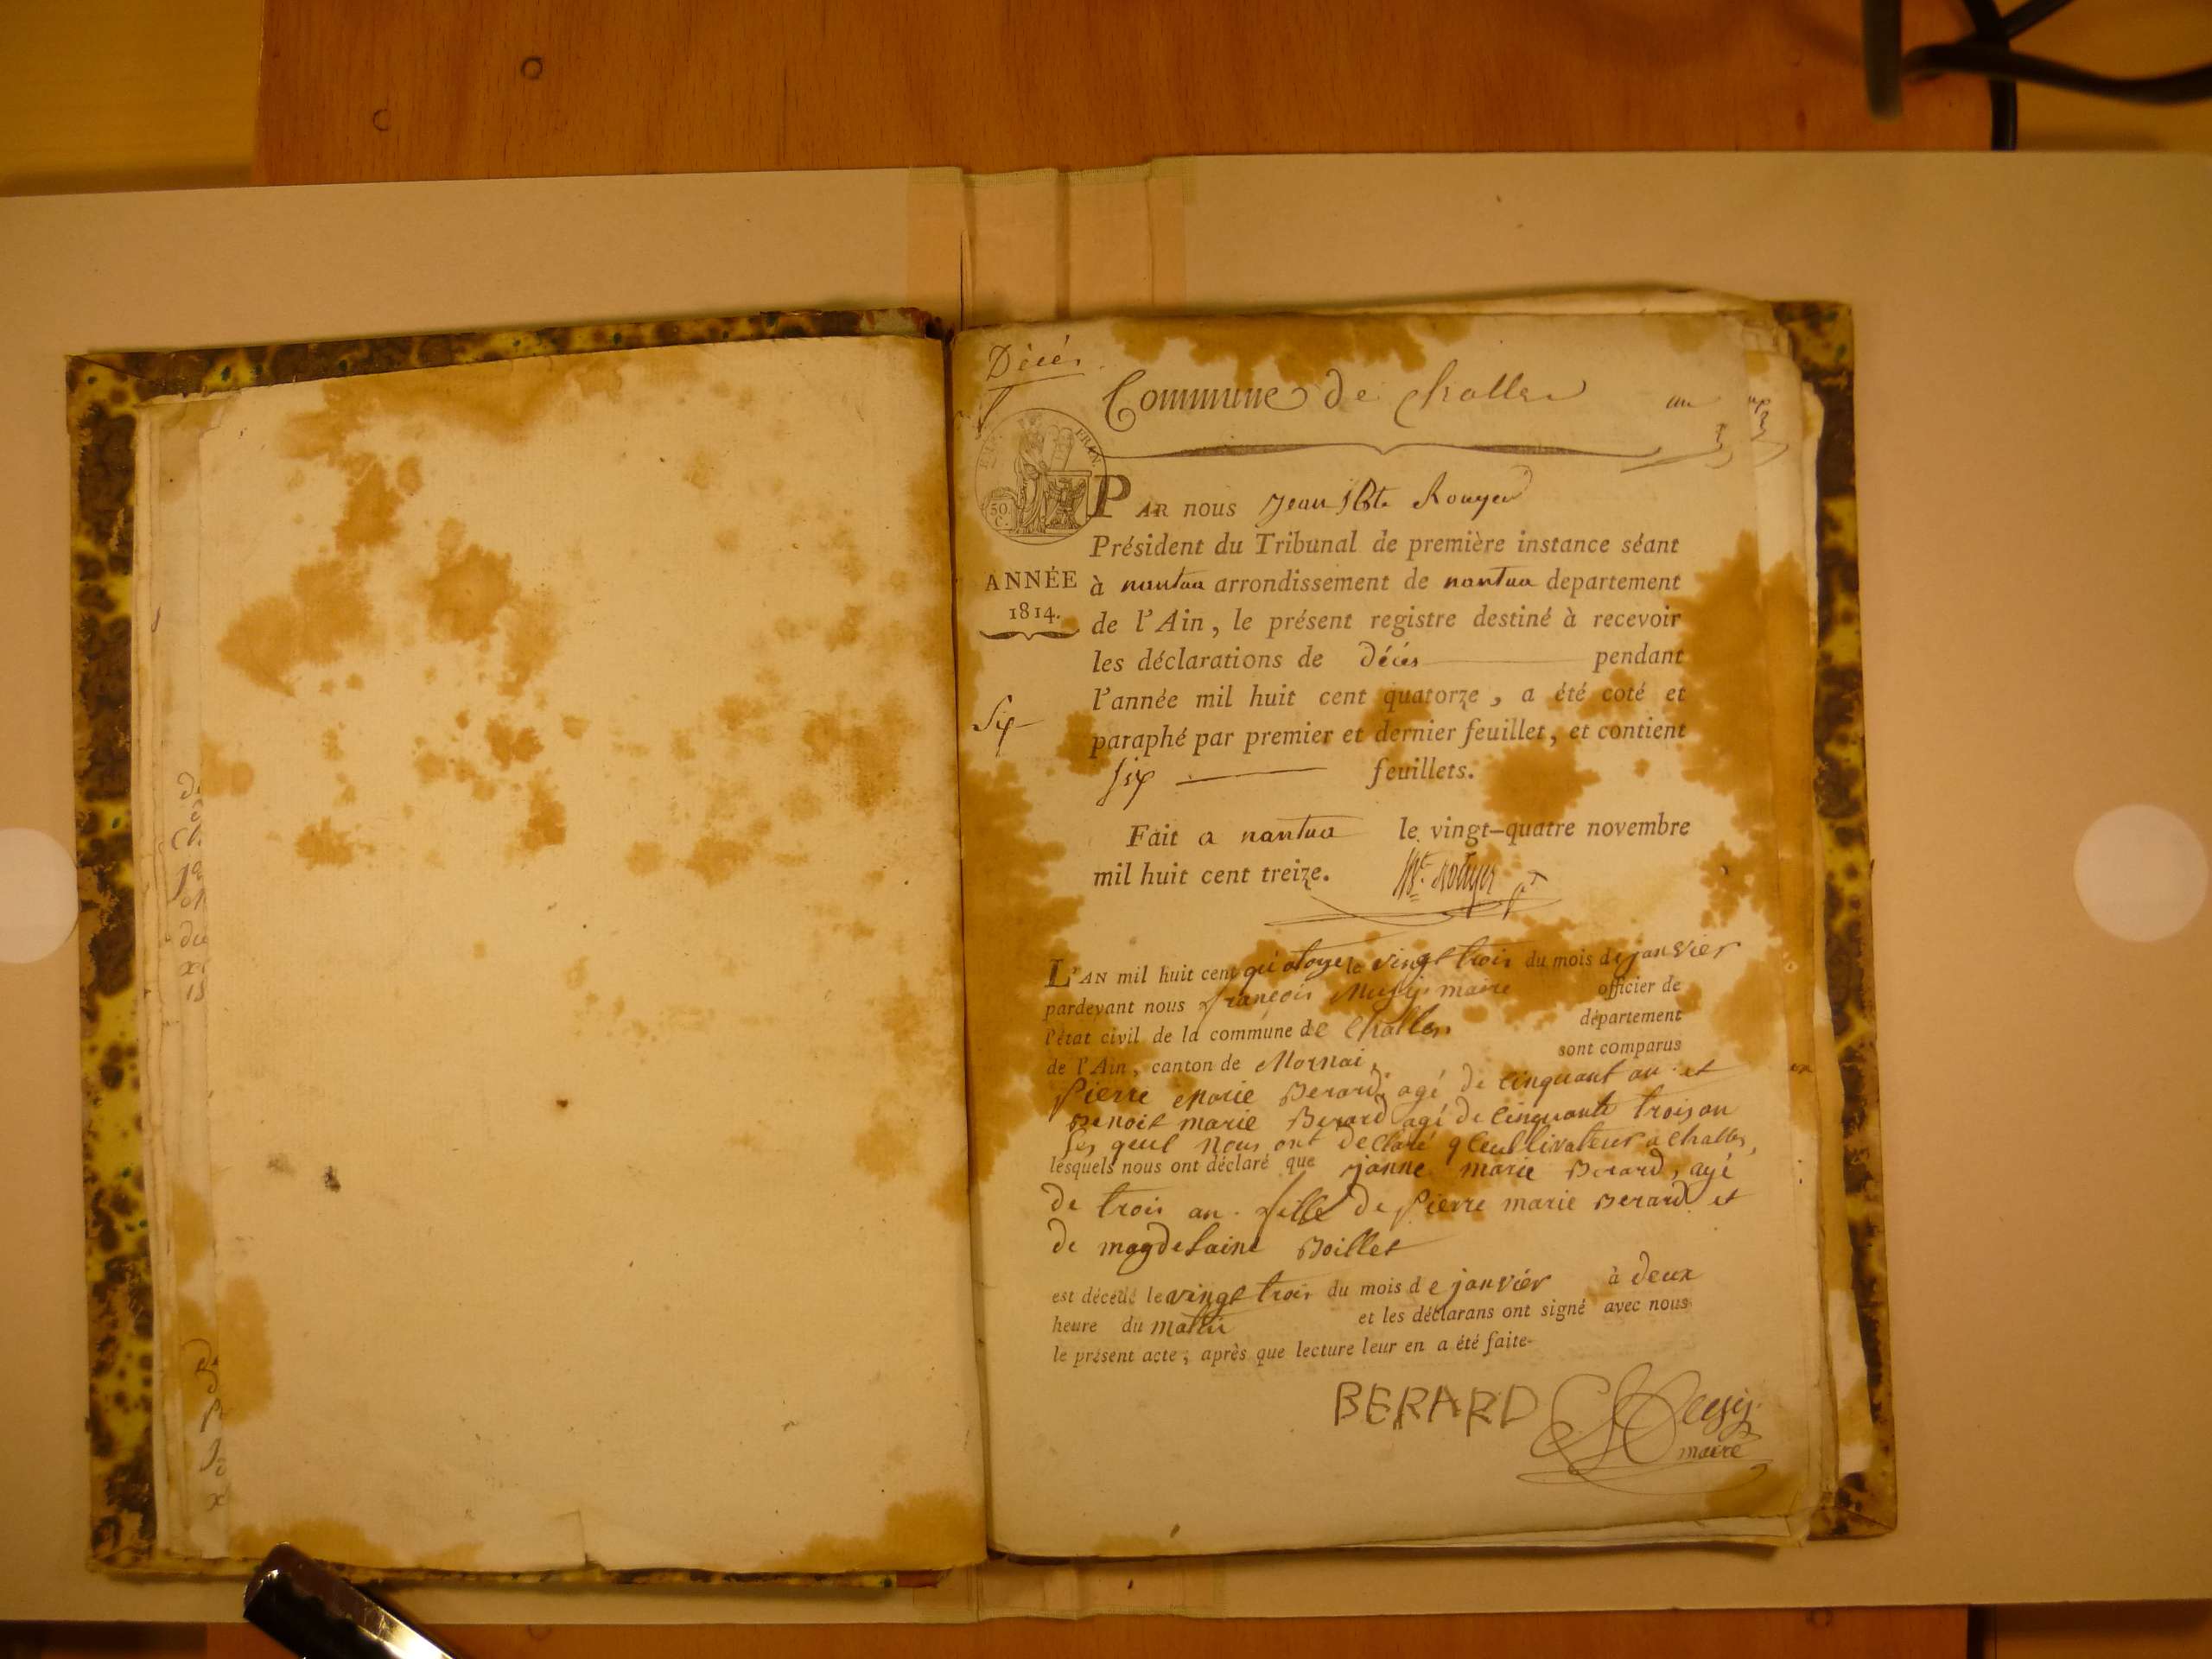 Décés.
Commune de Challes
un
FRAN.
50.
C.
PAR nous Jean Bte Rouyer
Président du Tribunal de première instance séant
ANNÉE
1814.
à nantua arrondissement de nantua departement
de l'Ain, le présent registre destiné à recevoir
les déclarations de Décés pendant
l'année mil huit cent quatorze, a été coté et
Six
paraphé par premier et dernier feuillet, et contient
six feuillets.
Fait a nantua le vingt-quatre novembre
mil huit cent treize. Bte Rouyer pt
L'AN mil huit cent quatorze le vingt trois du mois de janvier
pardevant nous françois Musy maire officier de
l'état civil de la commune de Challes département
de l'Ain, canton de Mornai, sont comparus
Pierre Marie Berard, agé de cinquant an et
Benoit marie Berard agé de cinquante trois an
les quel nous ont declaré cullivateur a Challes,
lesquels nous ont déclaré que janne marie Berard, agé
de trois an fille de Pierre marie Berard et
de magdelaine Boillet
est décédé le vingt trois du mois de janvier à deux
heure du matin et les déclarans ont signé avec nous
le présent acte, après que lecture leur en a été faite.
BERARD Musy
maire